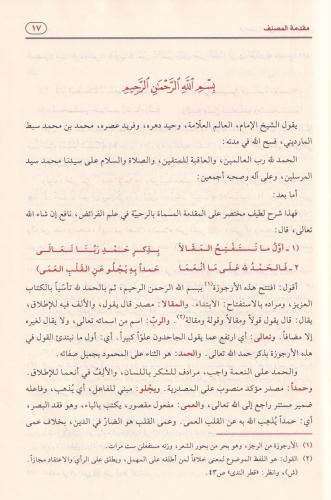 مقدمة المصنف
١٧
بِسْمِ اللَّهِ الرَّحْمَٰنِ الرَّحِيمِ
يقول الشيخ الإمام، العالم العلّامة، وحيد دهره، وفريد عصره، محمد بن محمد سبط
المارديني، فسح الله في مدته.
الحمد لله رب العالمين، والعاقبة للمتقين، والصلاة والسلام على سيدنا محمد سيد
المرسلين، وعلى آله وصحبه أجمعين:
أما بعد:
فهذا شرح لطيف مختصر على المقدمة المسماة بالرحبيّة في علم الفرائض، نافع إن شاء الله
تعالى، قال:
١ - أوَّلُ ما نَسْتَفْتِحُ المَقَالَا بِذِكرِ حَمْدِ رَبِّنَا تَعَالَى
٢ - فَالحَمْدُ لله عَلَى مَا أنْعَمَا حَمداً بهِ يَجْلُو عَنِ القَلْبِ العَمَى)
أقول: افتتح هذه الأرجوزة(١) ببسم الله الرحمن الرحيم، ثم بالحمد لله تأسياً بالكتاب
العزيز، ومراده بالاستفتاح: الابتداء. والمقالا: مصدر قال يقول، والألف فيه للإطلاق،
يقال: قال يقول قولاً ومقالاً وقولة ومقالة(٢). والربّ: اسم من اسمائه تعالى، ولا يقال لغيره
إلا مضافاً. وتعالى: أي ارتفع عما يقول الجاحدون علوّاً كبيراً. أي: أول ما نبتدئ القول في
هذه الأرجوزة بذكر حمد الله تعالى. والحمد: هو الثناء على المحمود بجميل صفاته.
والحمد على النعمة واجب، مرادف للشكر باللسان، والألف في أنعما للإطلاق.
وحمداً: مصدر مؤكد منصوب على المصدرية. ويجلو: مبني للفاعل، أي يُذهب، وفاعله
ضمير مستتر راجع إلى الله تعالى، والعمى: مفعول مقصور، يكتب بالياء، وهو فقد البصر،
أي: حمداً يُذهب الله به عن القلب العمى. وعمى القلب هو الضارّ في الدين، بخلاف عمى
(١) الأرجوزة من الرجز، وهو بحر من بحور الشعر، وزنه مستفعلن ست مرات.
(٢) القول: هو اللفظ الموضوع لمعنى خلافاً لمن أطلقه على المهمل، ويطلق على الرأي والاعتقاد مجازاً.
(ش)، وانظر: «قطر الندى» ص٤٣.